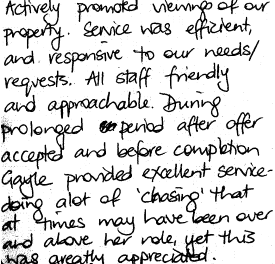 Actively promoted viewings of our
property. Service was efficient,
and responsive to our needs/
requests. All staff friendly
and approachable. During
prolonged period after offer
accepted and before completion
Gayle provided excellent service-
doing alot of 'chasing' that
at times may have been over
and above her role, yet this
was greatly appreciated.